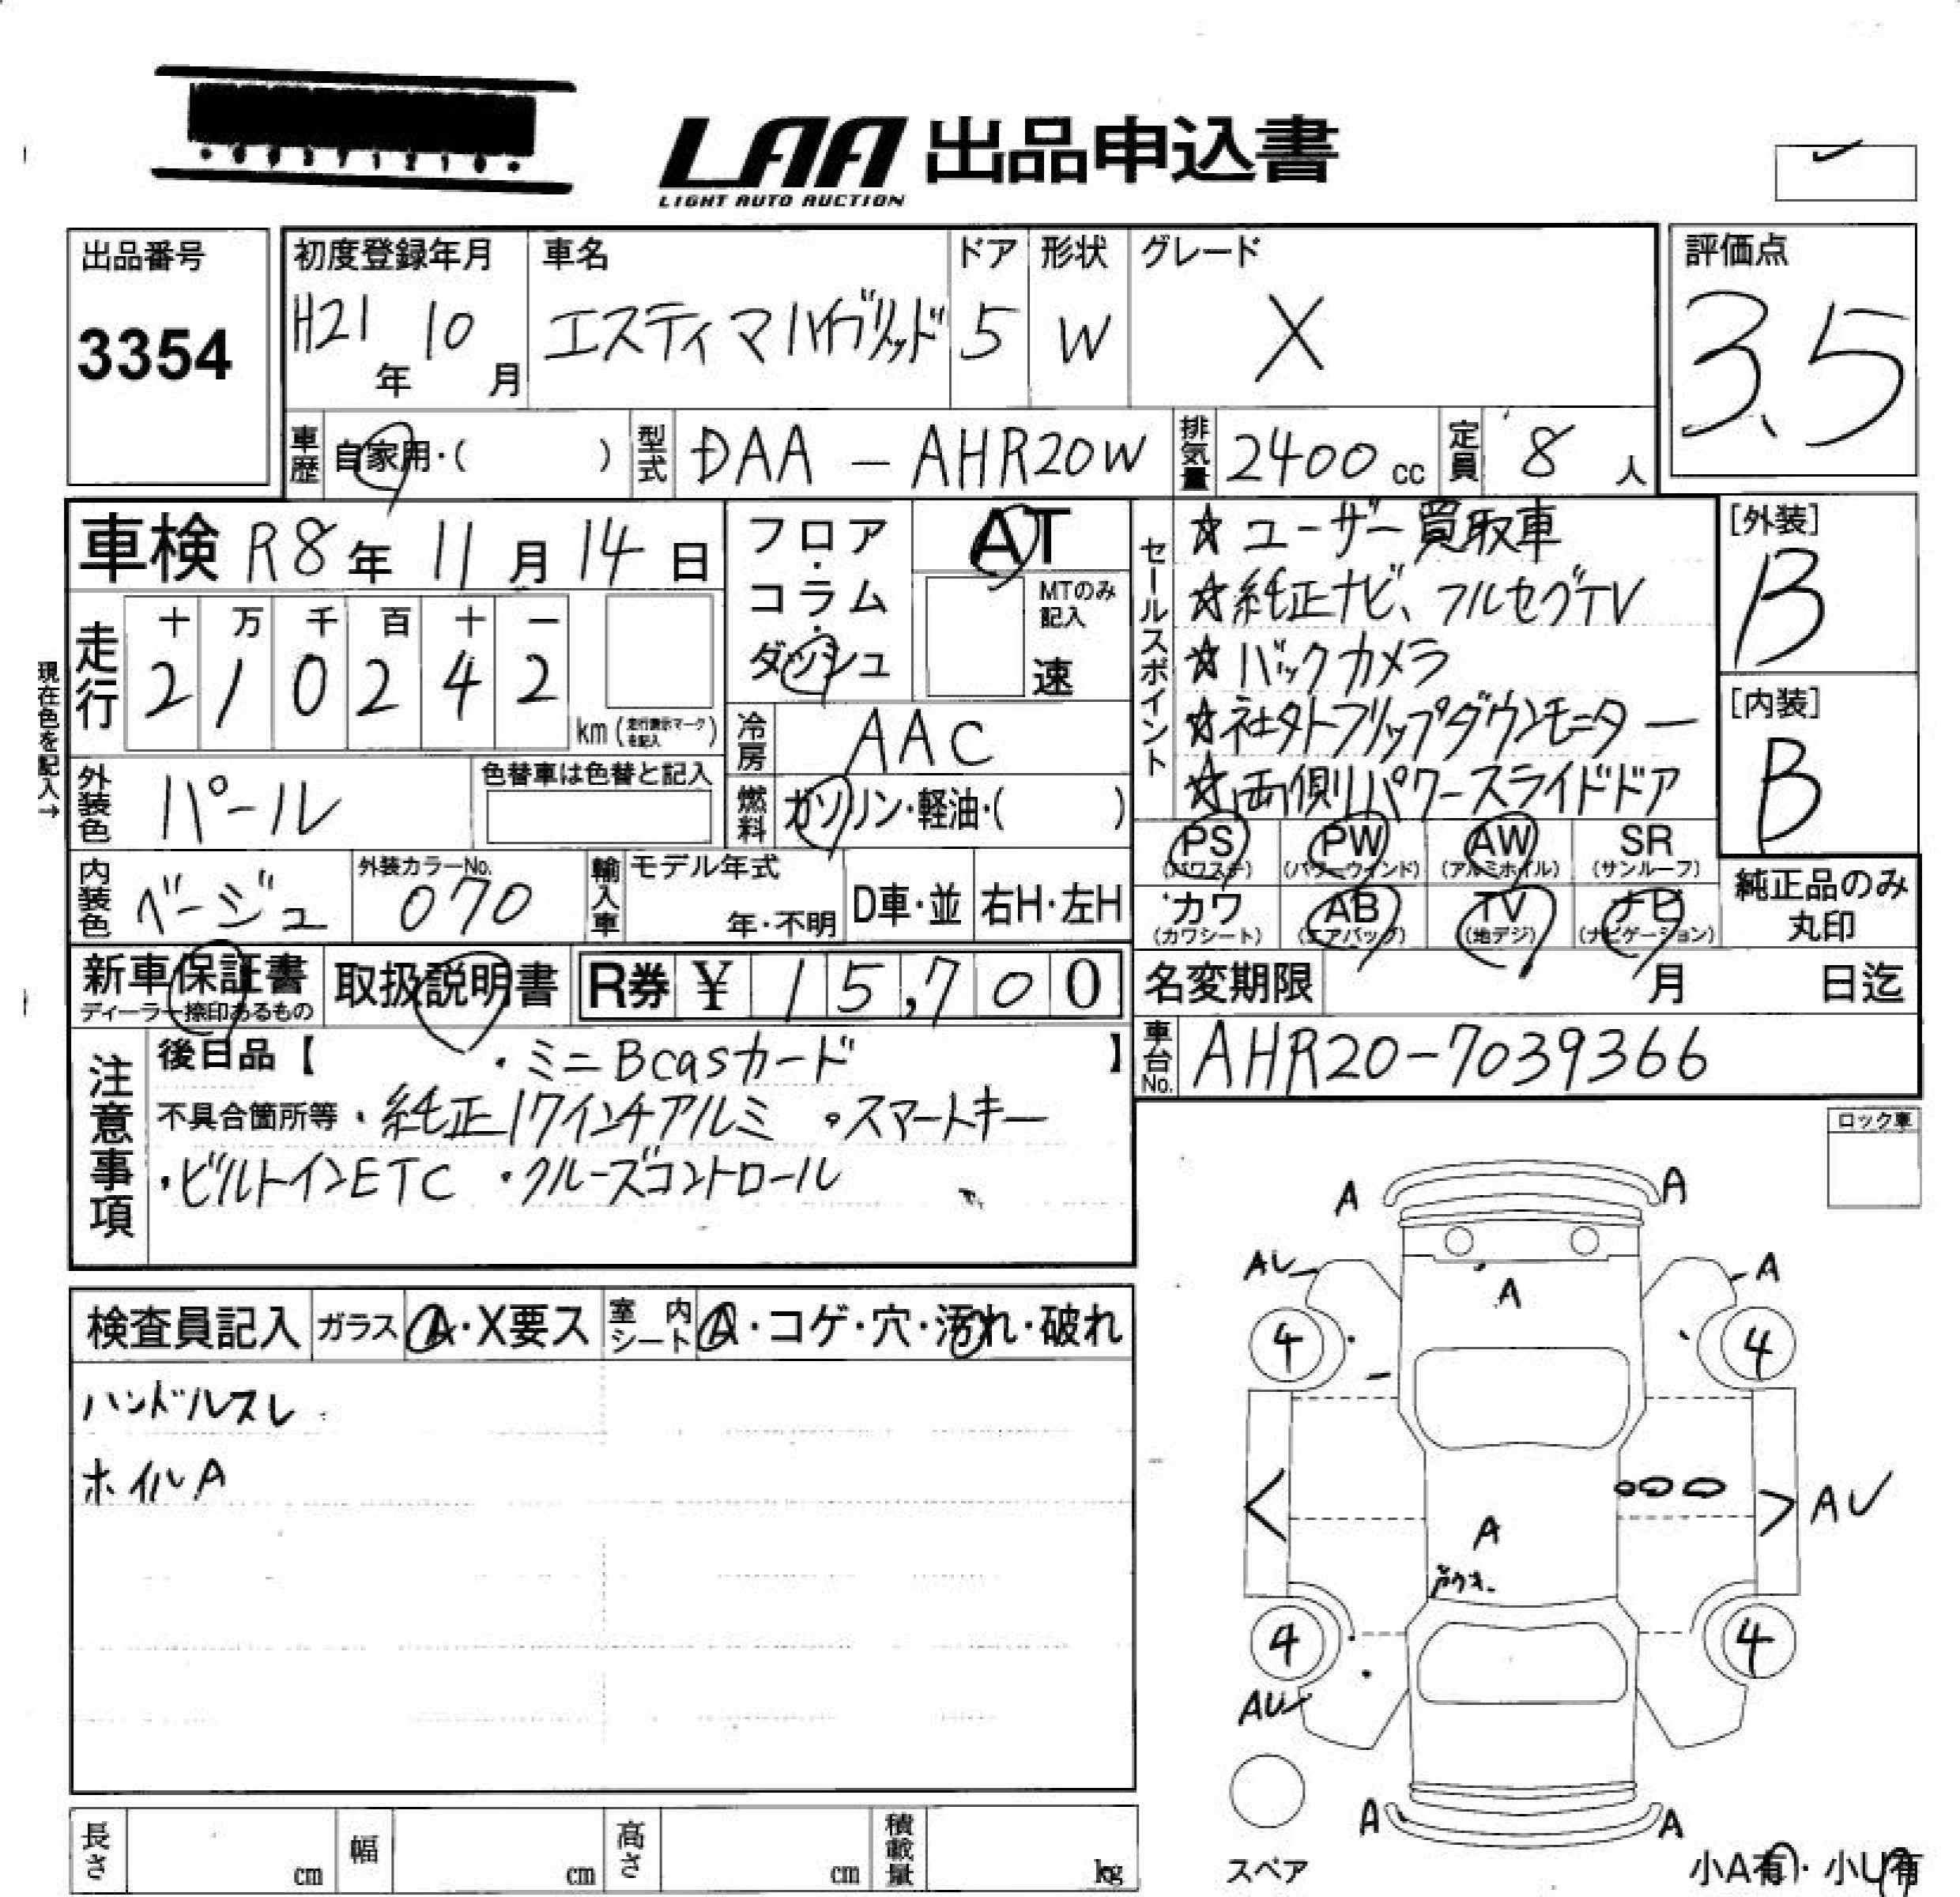 LAA 出品申込書
LIGHT AUTO AUCTION
出品番号
3354
初度登録年月
H21年 10月
車名
エスティマハイブリッド
ドア
5
形状
W
グレード
X
評価点
3.5
車歴 自家用・( )
型式 DAA-AHR20W
排気量 2400cc
定員 8人
車検 R8年 11月 14日
フロア・コラム・ダッシュ
AT
MTのみ記入
速
セールスポイント
☆ユーザー買取車
☆純正ナビ、フルセグTV
☆バックカメラ
☆社外フリップダウンモニター
☆両側パワースライドドア
[外装]
B
[内装]
B
現在色を記入→
走行
十 万 千 百 十 一
2 1 0 2 4 2
km (走行表示マークを記入)
冷房 AAC
外装色 パール
色替車は色替と記入
燃料 ガソリン・軽油・( )
PS (パワステ)
PW (パワーウインド)
AW (アルミホイル)
SR (サンルーフ)
カワ (カワシート)
AB (エアバッグ)
TV (地デジ)
ナビ (ナビゲーション)
純正品のみ丸印
内装色 ベージュ
外装カラーNo. 070
輸入車 モデル年式
年・不明
D車・並
右H・左H
新車保証書
ディーラー捺印あるもの
取扱説明書
R券 ¥ 15,700
名変期限 月 日迄
車台No. AHR20-7039366
注意事項
後日品【 ・ミニBcasカード 】
不具合箇所等・純正17インチアルミ ・スマートキー
・ビルトインETC ・クルーズコントロール
ロック車
検査員記入
ガラス A・X要ス
室内シート A・コゲ・穴・汚れ・破れ
ハンドルスレ
ホイルA
A A
AU A
A
4 4
AU
A
4 4
AU
A A
スペア
小A有・小U有
長さ cm
幅 cm
高さ cm
積載量 kg